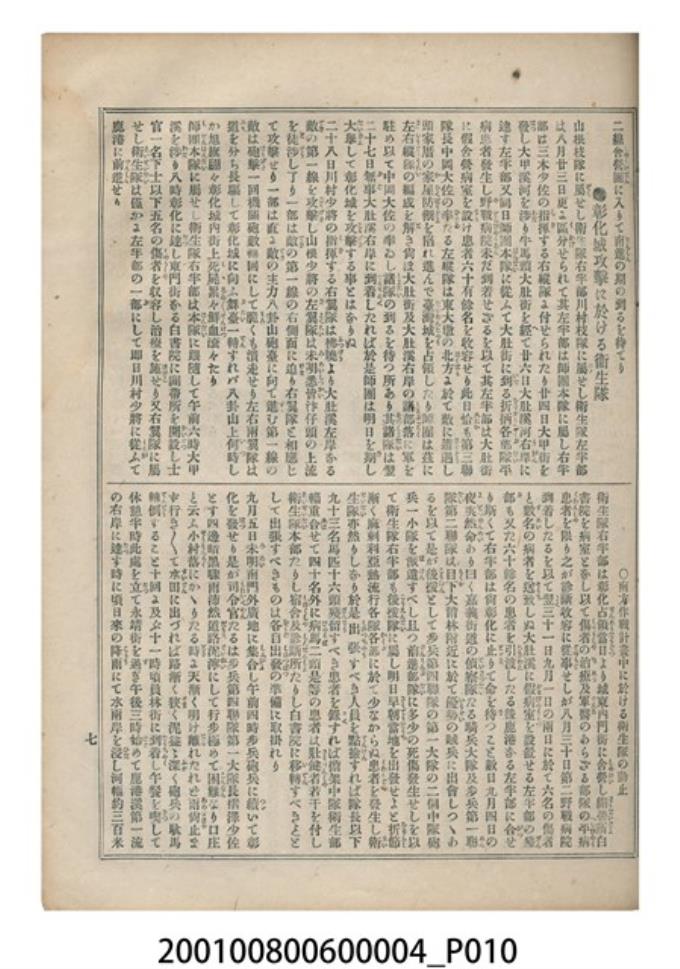 二線舍松園に入りて南進の期の到るを待てり
●彰化城攻擊に於ける衛生隊
山根枝隊に屬せし衛生隊右半部川村枝隊に屬せし衛生隊左半部
は八月廿三日更に區分せられて其左半部は師團本隊に屬し右半
部は三木少佐の指揮する右縱隊に付せられたり廿四日大甲街を
發し大甲溪河を渉り牛馬頭大肚街を經て廿六日大肚溪河右岸に
達す左半部又同日師團本隊に從ふて大肚街に到る折柄各部隊平
病患者發生し野戰病院未だ到着せざるを以て其左半部は大肚街
に假舍營病室を設け患者六十有餘名を收容せり此日恰も第三聯
隊長中岡大佐の率たる左縱隊は東大墩の北方に於て敵に遭遇し
頭家厝の家屋防禦を陷れ進んで臺灣城を占領したり師團は茲に
左右縱隊の編成を解き尚ほ大肚街及大肚溪右岸の諸部落に軍を
駐め以て中岡大佐の率ゐし諸隊の到るを待つ所あり其諸隊は翌
二十七日無事大肚溪右岸に到着したれば於是師團は明日を期し
大擧して彰化城を攻擊する事とはなりぬ
二十八日川村少將の指揮する右翼隊は拂曉より大肚溪左岸なる
敵の第一線を攻擊し山根少將の左翼隊は未明悉皆汴仔頭の上流
を徒渉し了り一部は敵の第一線の右側面に迫り右翼隊と相應じ
て攻擊せり一部は直に敵の主力八卦山砲臺に向て進む第一線の
敵は砲擊一回機關砲數囘にして脆くも潰走せり左右兩翼隊は
道を分ち長驅して彰化城に向ふ舞臺一轉すれバ八卦山上何時し
か旭旗飜々彰化城内街上死屍累々鮮血淋々たり
師團本隊に屬せし衛生隊右半部は本隊に跟隨して午前六時大甲
溪を渉り八時彰化に達し東門街なる白書院に繃帶所を開設し士
官一名下士以下五名の傷者を收容し治療を施せり又右翼隊に屬
せし衛生隊は僅かに左半部の一部にして即日川村少將に從ふて
鹿港に前進せり
○南方作戰計畫中に於ける衛生隊の動止
衛生隊右半部は彰化占領當日より城東内門街に舍營し衛舍所白
書院を病室と爲し以て傷者の治療及軍醫のあらざる部隊の平病
患者を限り之が診斷收容に從事せしが八月三十日第二野戰病院
到着したるを以て翌三十一日九月一日の兩日に於て六名の傷者
と數名の病者を送致しぬ大肚溪に假病室を設けせる左半部の殘
部も又た六十餘名の患者を引渡したる後鹿港なる左半部に合せ
り斯くて右半部は尚彰化に止りて命を待つこと數日九月四日の
夜突然命あり曰く嘉義街道の偵察隊たる騎兵大隊及步兵第一聯
隊第二聯隊は目下大莆林附近に於て優勢の敵兵に出會しつゝあ
るを以て是が後援として步兵第四聯隊の第一大隊の二個中隊砲
兵一小隊を派遣すべし且つ前進部隊に多少の死傷發生せしを以
て衛生隊右半部も後援隊に屬し明日早朝當地を出發せよと折節
漸く麻剌利亞熱流行各隊各部に於て少なからぬ患者を發生し衛
生隊亦然りしなり於是出張すべき人員を點撿すれば隊長以下
九十三名馬匹十六頭殘留すべき患者を算すれば擔架中隊衛生部
輜重合せて四十名外に病馬二頭是等の患者は駐健者若干を付し
衛生隊本部たりし宿舍及診斷所たりし白書院に移轉すべきこと
して出張すべきものは各自出發の準備に取掛れり
九月五日未明南門外廣地に集合し午前四時步兵砲兵に續いて彰
化を發せり是が司令官たるは步兵第四聯隊第一大隊長摺澤少佐
とす四邊暗黑驟雨沛然道路泥濘にして行步極めて困難なり口庄
と云ふ小村落にかゝりたる時に天漸く明け離れたれど雨尚止ま
ず行き〱て水田に出づれば路漸く狹く泥益々深く砲兵の駄馬
轉倒すること十囘に及ぶ十一時頃員林街に到着し午餐を喫して
休憩半時此處を立て永靖街を過ぎ午後三時始めて鹿港溪第一流
の右岸に達す時に頃日來の降雨にて水兩岸を浸し河幅約三百米
七
200100800600004_P010